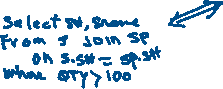 Select S#, Sname
From S join SP
on S.S# = SP.S#
Where QTY > 100